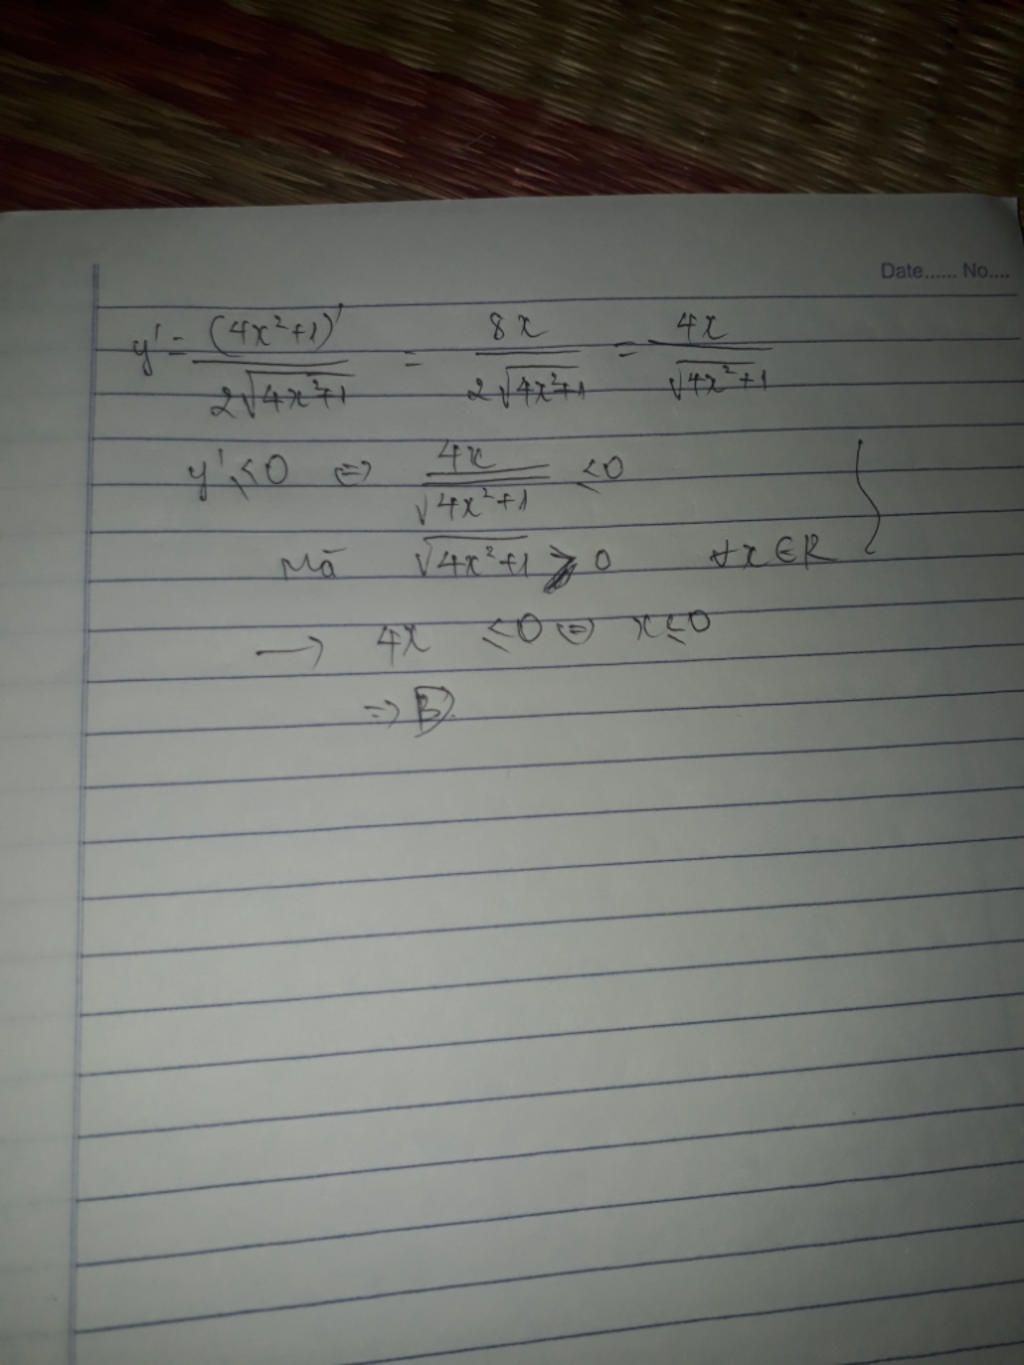 Date...... No....
y' = (4x²+1)' / 2√4x²+1 = 8x / 2√4x²+1 = 4x / √4x²+1
y' ≤ 0 ⇔ 4x / √4x²+1 ≤ 0
Mà √4x²+1 > 0 ∀x∈R }
→ 4x ≤ 0 ⇔ x ≤ 0
⇒ B.